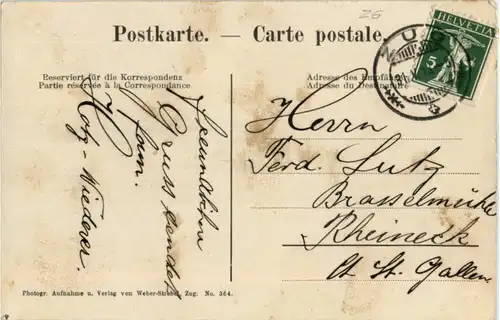 26
Postkarte. — Carte postale.
HELVETIA
5
ZUG
Reserviert für die Korrespondenz
Partie réservée à la Correspondance
Adresse des Empfängers
Adresse du Destinataire
Freundlichen
Gruss sendet
Fam.
Hotz-Wiederer.
Herrn
Ferd. Lutz
Brasselmühle
Rheineck
Ct. St. Gallen
Photogr. Aufnahme u. Verlag von Weber-Strebel, Zug. No. 364.